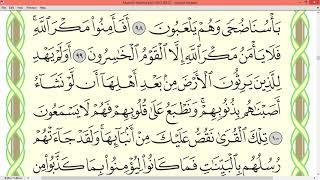 بَأْسُنَا ضُحًى وَهُمْ يَلْعَبُونَ ٩٨ أَفَأَمِنُوا۟ مَكْرَ ٱللَّهِ ۚ
فَلَا يَأْمَنُ مَكْرَ ٱللَّهِ إِلَّا ٱلْقَوْمُ ٱلْخَٰسِرُونَ ٩٩ أَوَلَمْ يَهْدِ
لِلَّذِينَ يَرِثُونَ ٱلْأَرْضَ مِنۢ بَعْدِ أَهْلِهَآ أَن لَّوْ نَشَآءُ
أَصَبْنَٰهُم بِذُنُوبِهِمْ ۚ وَنَطْبَعُ عَلَىٰ قُلُوبِهِمْ فَهُمْ لَا يَسْمَعُونَ
١٠٠ تِلْكَ ٱلْقُرَىٰ نَقُصُّ عَلَيْكَ مِنْ أَنۢبَآئِهَا ۚ وَلَقَدْ جَآءَتْهُمْ
رُسُلُهُم بِٱلْبَيِّنَٰتِ فَمَا كَانُوا۟ لِيُؤْمِنُوا۟ بِمَا كَذَّبُوا۟ مِن